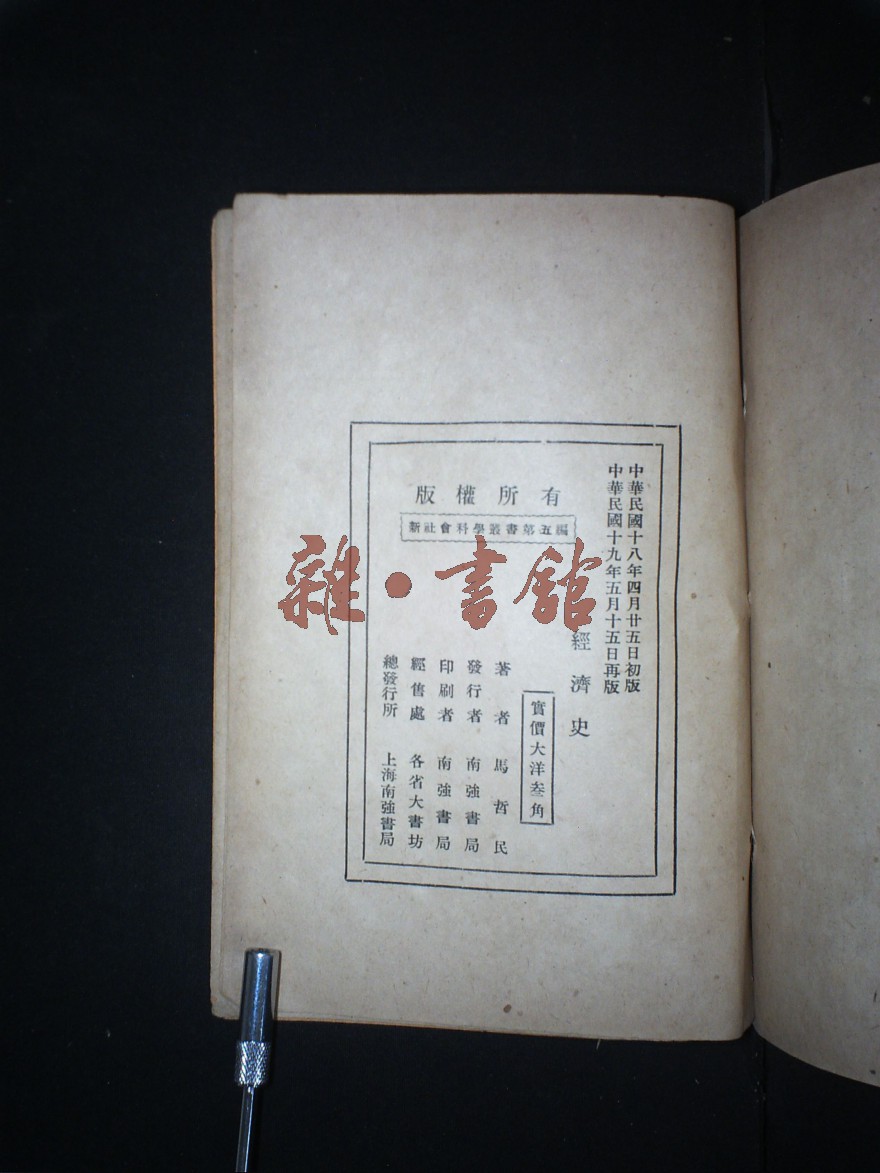 中華民國十八年四月廿五日初版
中華民國十九年五月十五日再版
經濟史
實價大洋叁角
著者 馬哲民
發行者 南強書局
印刷者 南強書局
經售處 各省大書坊
總發行所 上海南強書局
版權所有
新社會科學叢書第五編
雜·書館